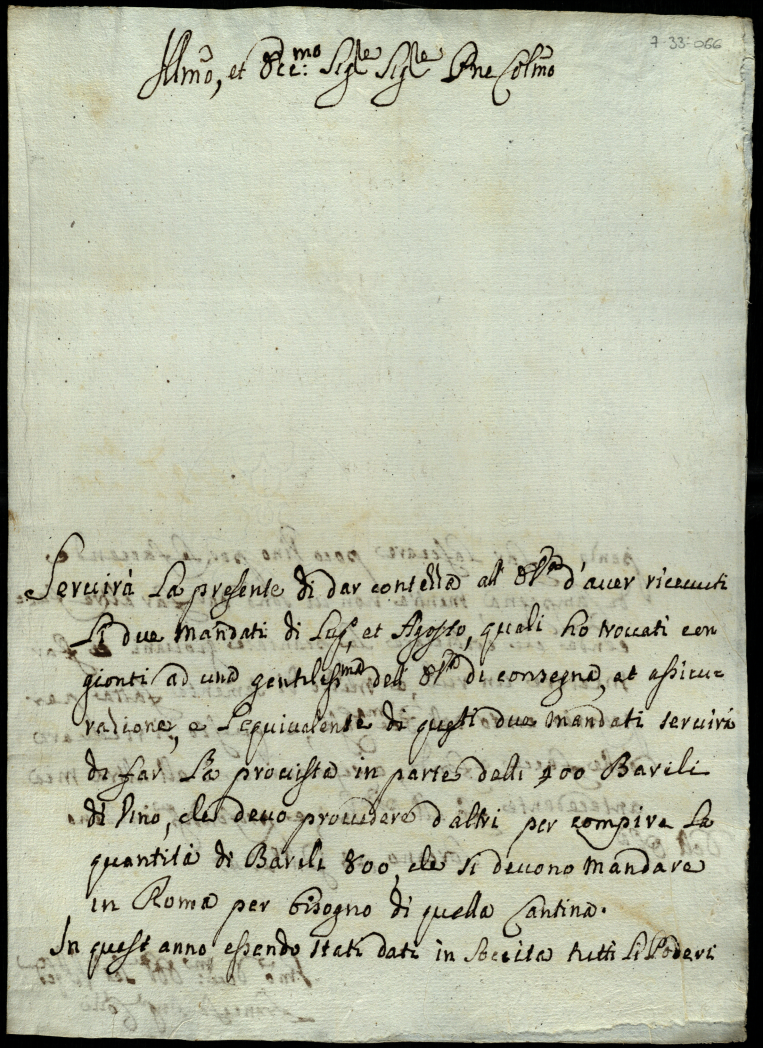 7-33-066
Illmo, et Ecc:mo Sigre Sigre Pne Colmo
Servirà La presente di dar contezza all' E.V. d'aver ricevuti
Li due Mandati di Lug.o, et Agosto, quali hò trovati con
gionti ad una gentiliss.ma dell' E.V. di consegna, et assicu=
razione, e L'equivalente di questi due Mandati servirà
di far La provista in parte delli 400 Barili
di Vino, che devo provedere d'altri per compire La
quantità di Barili 800, che si devono Mandare
in Roma per bisogno di quella Cantina.
In quest'anno essendo stati dati in Soccita tutti Li Poderi